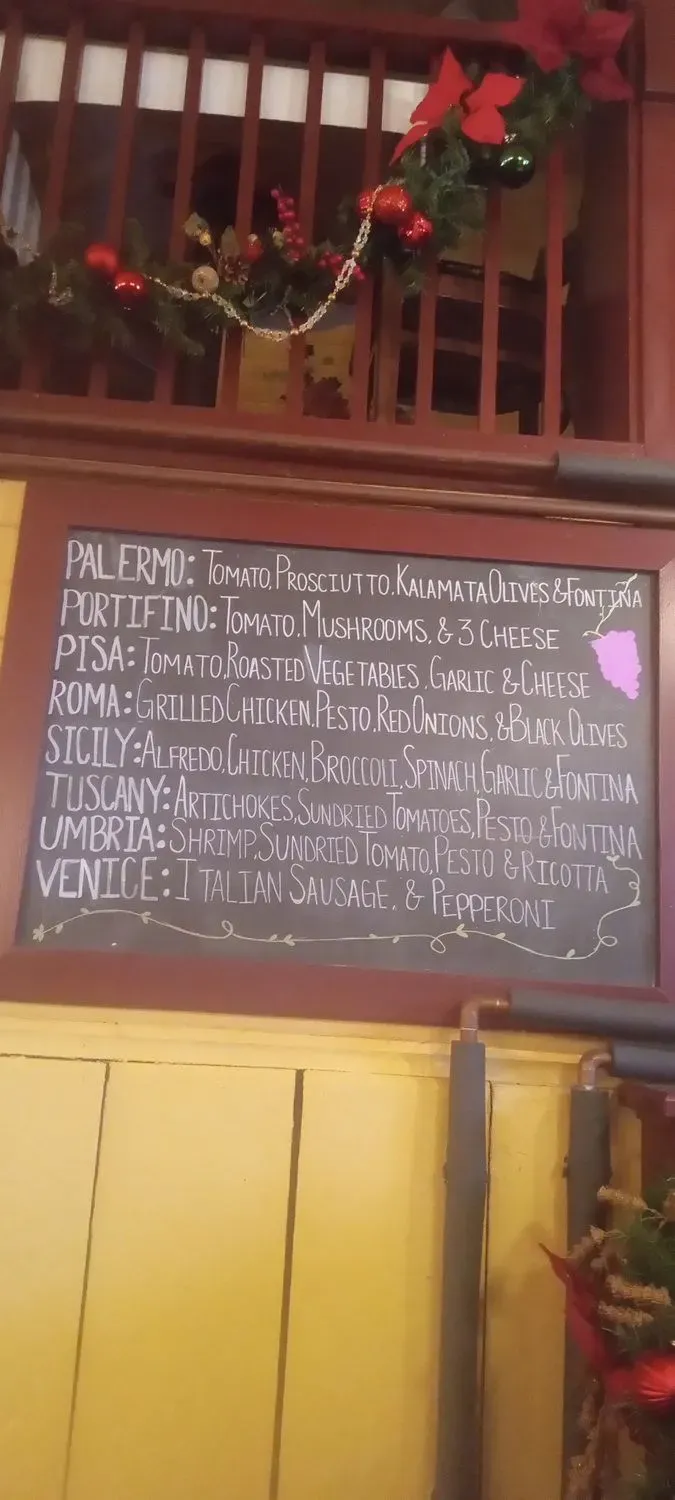 PALERMO: TOMATO, PROSCIUTTO, KALAMATA OLIVES & FONTINA
PORTIFINO: TOMATO, MUSHROOMS, & 3 CHEESE
PISA: TOMATO, ROASTED VEGETABLES, GARLIC & CHEESE
ROMA: GRILLED CHICKEN, PESTO, RED ONIONS, & BLACK OLIVES
SICILY: ALFREDO, CHICKEN, BROCCOLI, SPINACH, GARLIC & FONTINA
TUSCANY: ARTICHOKES, SUNDRIED TOMATOES, PESTO & FONTINA
UMBRIA: SHRIMP, SUNDRIED TOMATO, PESTO & RICOTTA
VENICE: ITALIAN SAUSAGE, & PEPPERONI